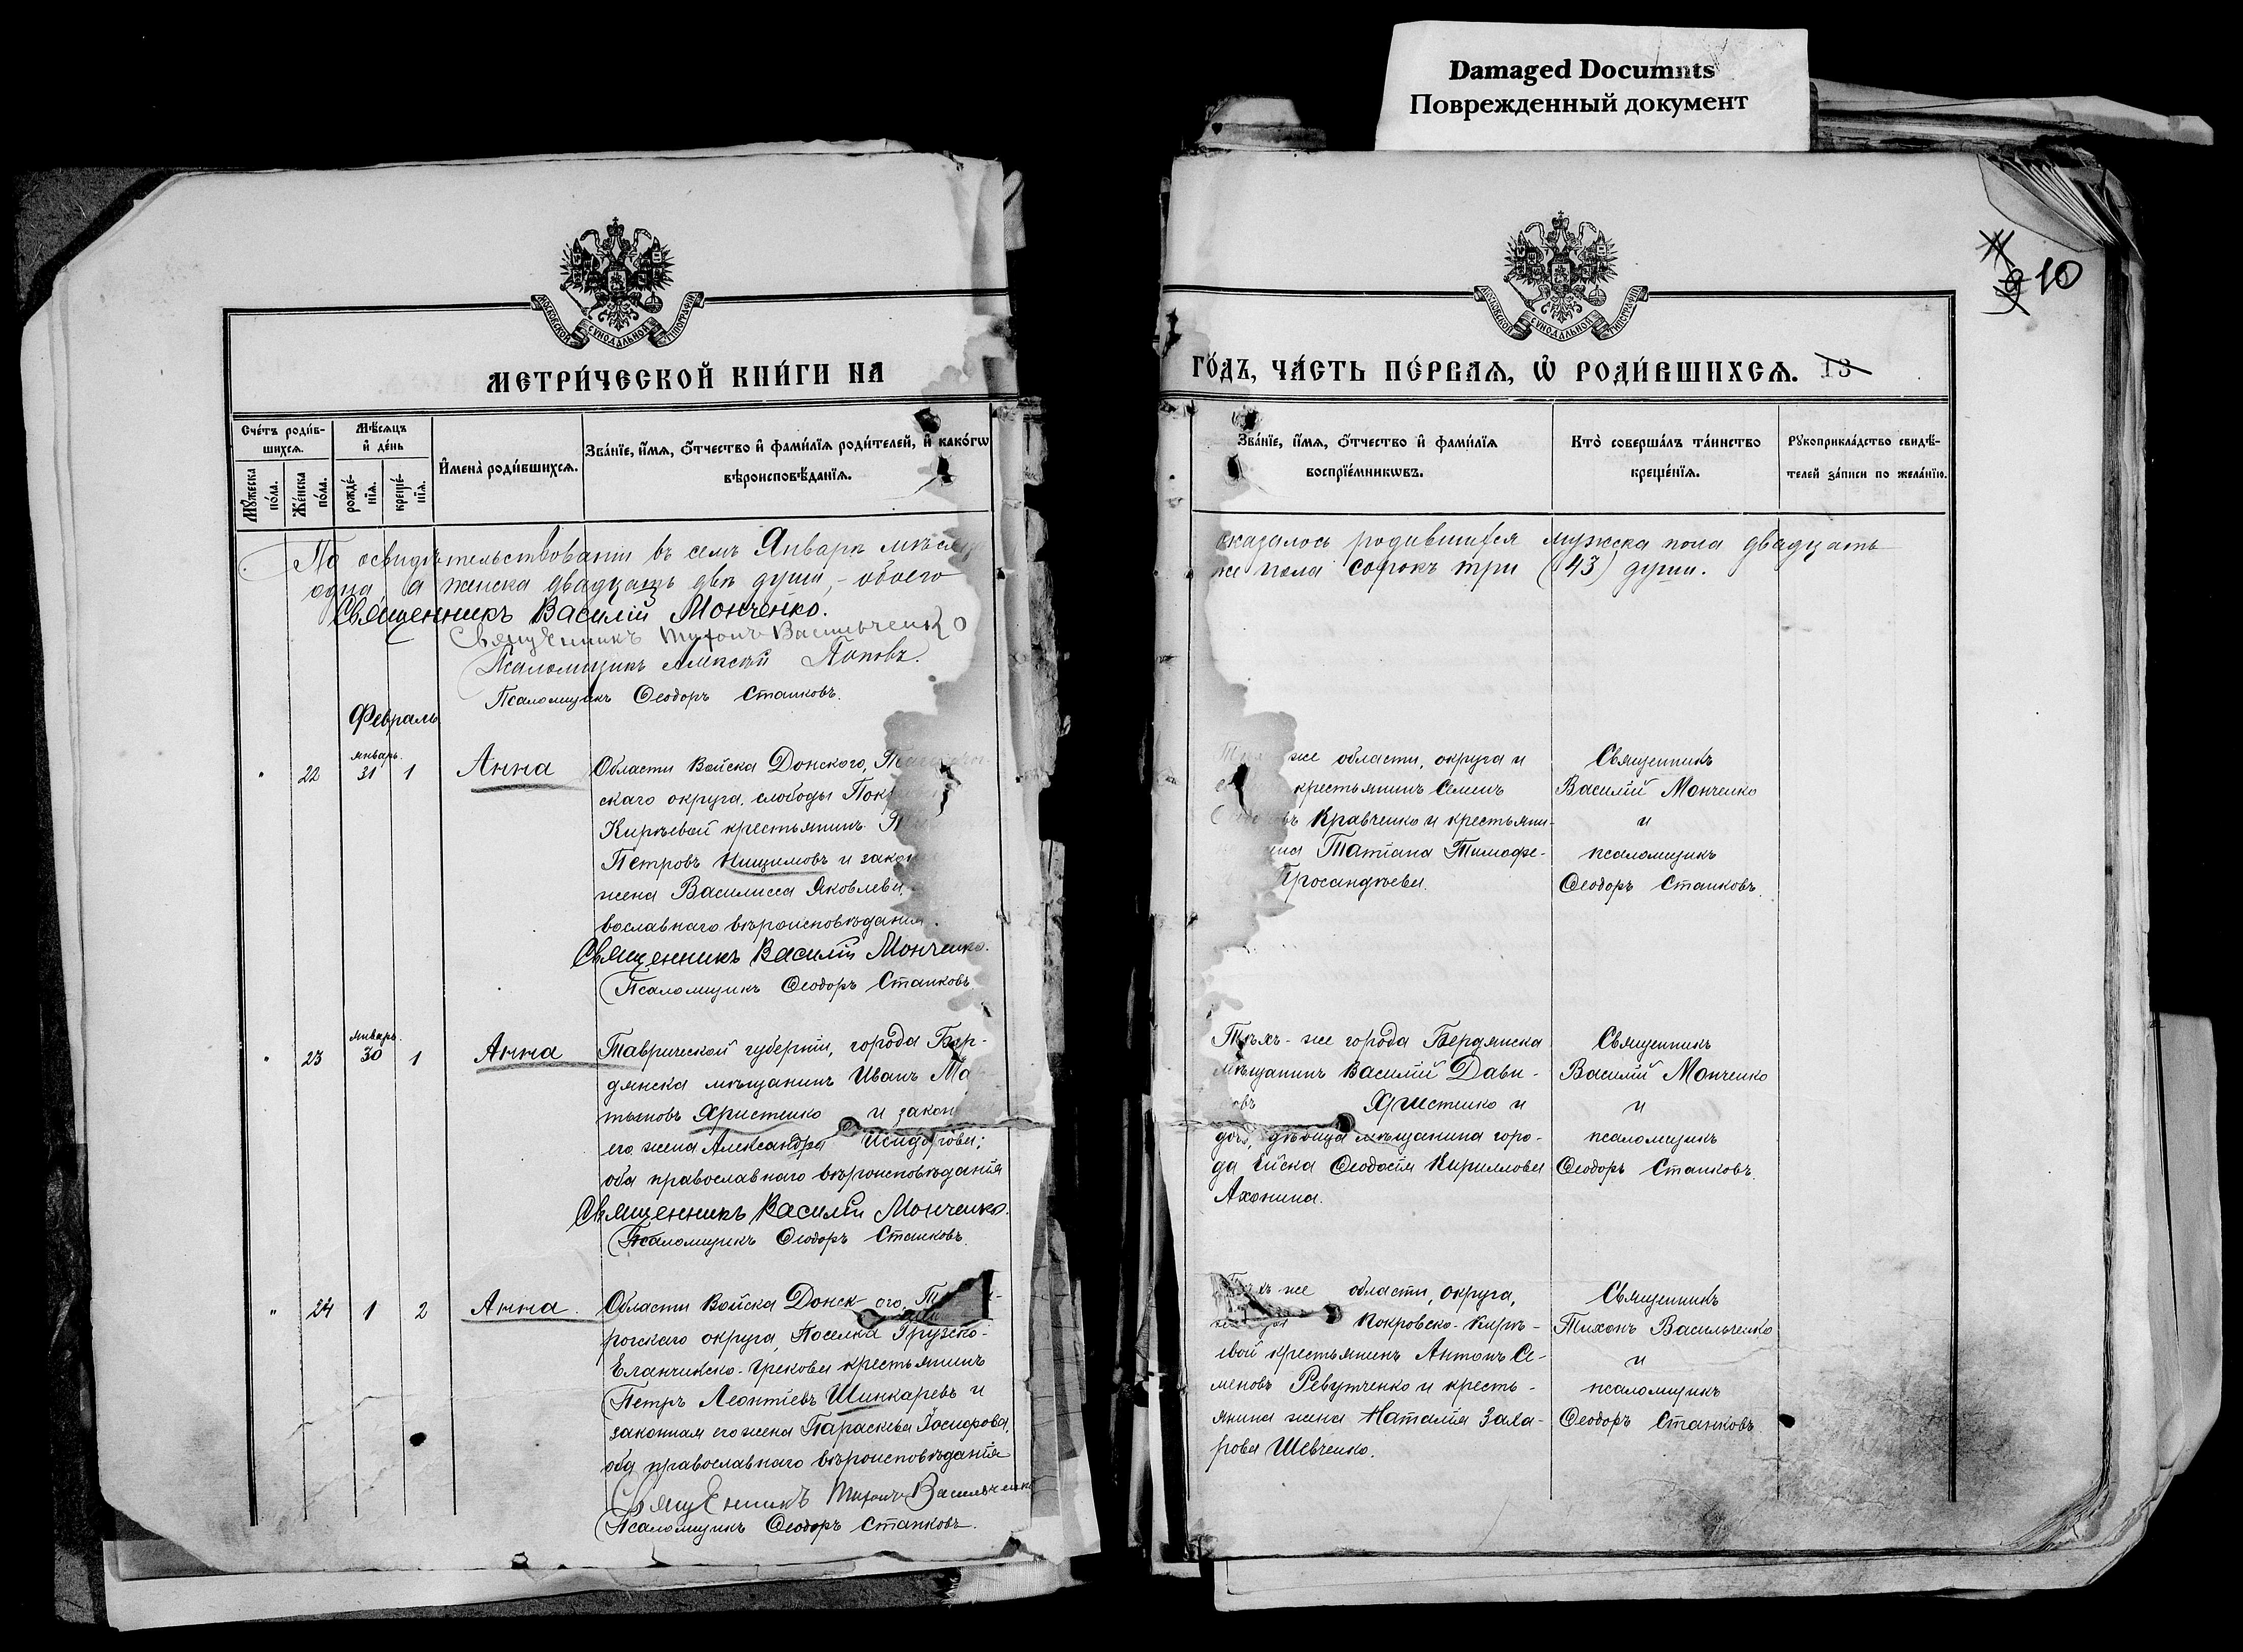 Damaged Documnts
Поврежденный документ
10
МОСКОВСКОЙ СѴНОДАЛЬНОЙ ТИПОГРАФІИ
МОСКОВСКОЙ СѴНОДАЛЬНОЙ ТИПОГРАФІИ
МЕТРИ́ЧЕСКОЙ КНИ́ГИ НА
ГО́ДЪ, ЧА́СТЬ ПЕ́РВАѦ, Ѽ РОДИ́ВШИХСѦ. 13
Сче́тъ роди́в-
шихсѧ.
Мꙋ́жеска по́ла.
Же́нска по́ла.
Мѣ́сѧцъ
и҆ де́нь
рожде́-
нїѧ.
креще́-
нїѧ.
И҆мена̀ роди́вшихсѧ.
Зва́нїе, и҆́мѧ, ѻ҆́тчество и҆ фами́лїѧ роди́телей, и҆ како́гѡ
вѣроисповѣ́данїѧ.
Зва́нїе, и҆́мѧ, ѻ҆́тчество и҆ фами́лїѧ
воспрїе́мникѡвъ.
Кто̀ соверша́лъ та́инство
креще́нїѧ.
Рꙋкоприкла́дство свидѣ́-
телей за́писи по жела́нїю.
По освидѣтельствованіи въ семъ Январѣ
одна, а женска двадцать двѣ души, - обоего
оказалось родившихся мужска пола двадцать
же пола сорокъ три (43) души.
Священникъ Василій Монченко.
Священникъ Тихонъ Васильченко
Псаломщикъ Алексѣй Поповъ.
Псаломщикъ Ѳеодоръ Станковъ.
Февраль
" 22 январь. 31 1 Анна
Области Войска Донского,
скаго округа, слободы
Кирѣевой крестьянинъ
Петровъ Нищимовъ и
жена Василисса Яковлева,
вославнаго вѣроисповѣданія.
Священникъ Василій Монченко.
Псаломщикъ Ѳеодоръ Станковъ
же области, округа и
крестьянинъ Семенъ
Кравченко и крестьяни-
Татіана Тимофе-
Священникъ
Василій Монченко
и
псаломщикъ
Ѳеодоръ Станковъ.
" 23 январь. 30 1 Анна
Таврической губерніи, города Бер-
дянска мѣщанинъ Иванъ
Христенко и
его жена Александра Исидорова;
оба православнаго вѣроисповѣданія
Священникъ Василій Монченко.
Псаломщикъ Ѳеодоръ Станковъ.
Тѣхъ-же города Бердянска
мѣщанинъ Василій Дави-
Христенко и
дочь, дѣвица мѣщанина горо-
да Ейска Ѳеодосія Кириллова
Ахонина.
Священникъ
Василій Монченко
и
псаломщикъ
Ѳеодоръ Станковъ.
" 24 1 2 Анна.
Области Войска Донского,
рогскаго округа, Поселка Грузско-
Еланчикско-Грековы крестьянинъ
Петръ Леонтіевъ Шинкаревъ и
законная его жена Параскева Іосифова,
оба православнаго вѣроисповѣданія
Священникъ Тихонъ Васильченко
Псаломщикъ Ѳеодоръ Станковъ.
же области, округа,
Покровско-Кирѣ-
евой крестьянинъ Антонъ Се-
меновъ Ревутченко и кресть-
янина жена Наталія Заха-
рова Шевченко.
Священникъ
Тихонъ Васильченко
и
псаломщикъ
Ѳеодоръ Станковъ